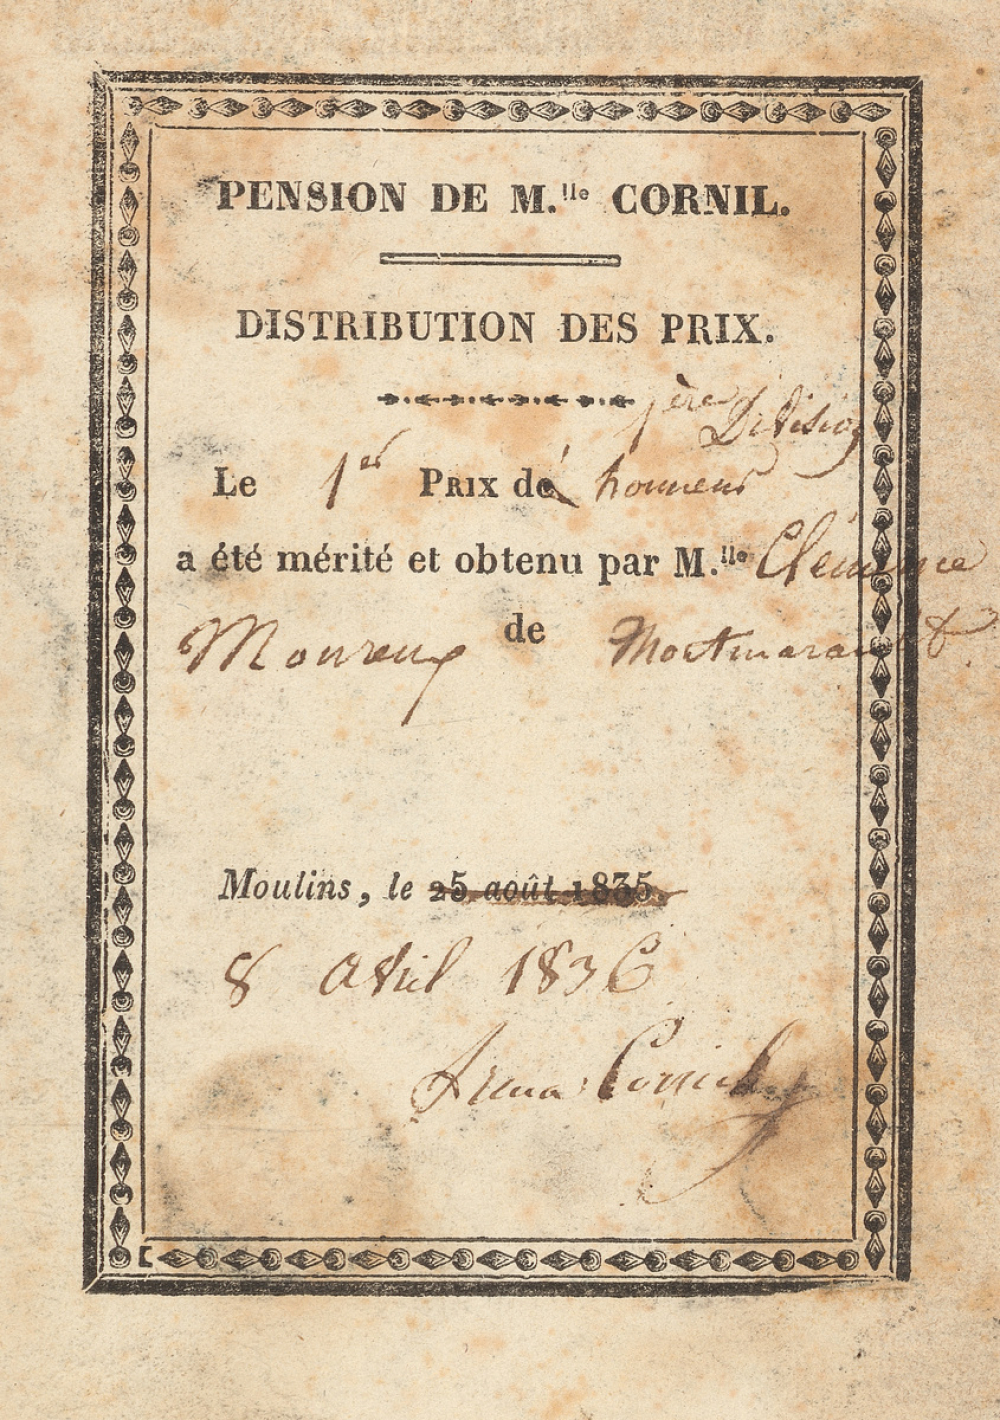 PENSION DE M.lle CORNIL.
DISTRIBUTION DES PRIX.
1ère Division
Le 1er PRIX d' honneur
a été mérité et obtenu par M.lle Clémence
de Montmarault
Moulins, le 25 août 1835.
8 Avril 1836
Cornil